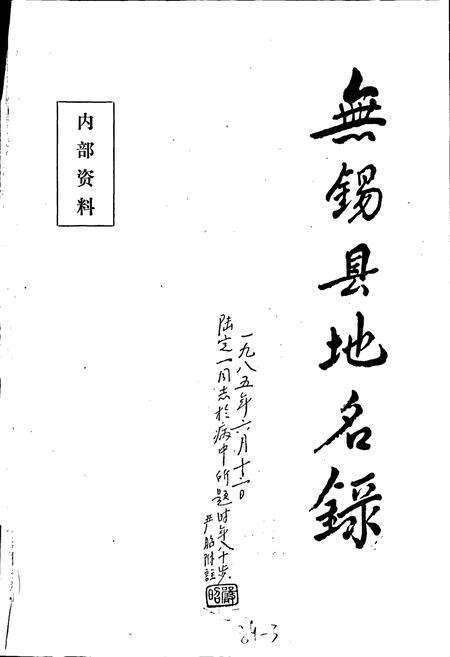 無錫县地名錄
内部资料
一九八五年六月十二日
陆定一同志於病中所题时年八十岁
严昭附註